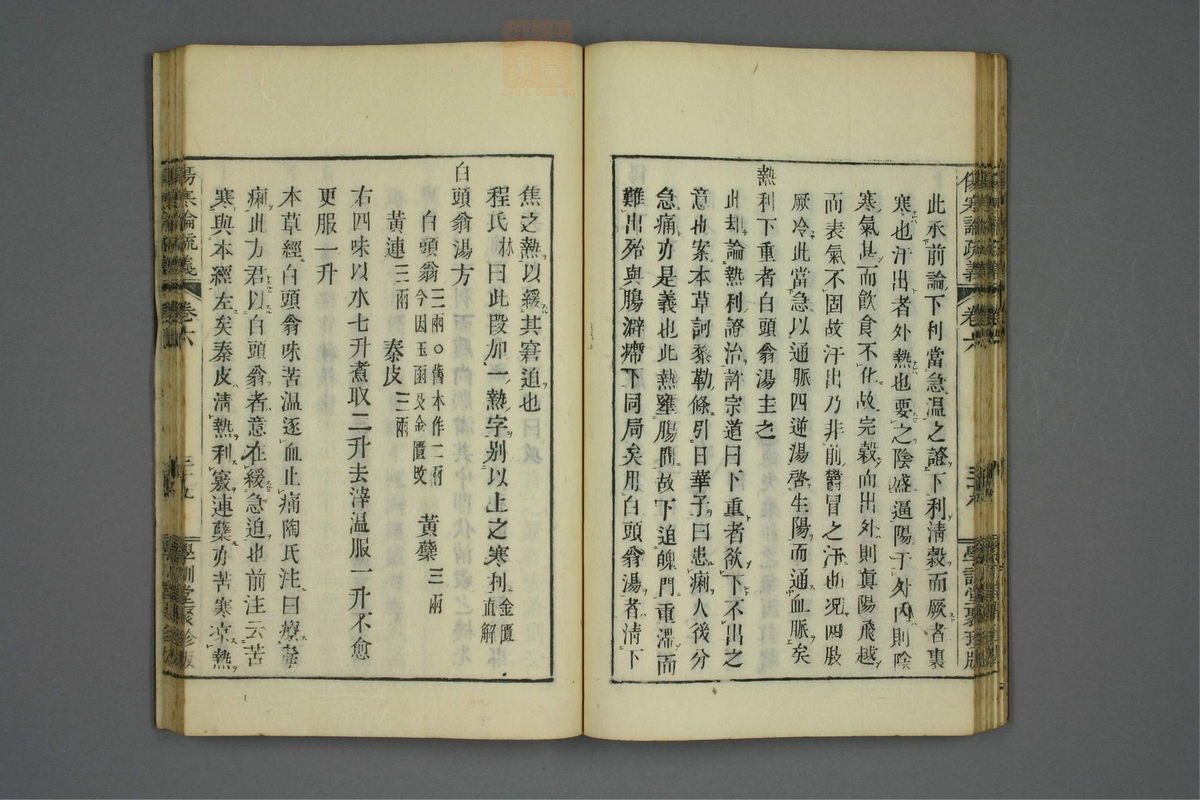 傷寒論疏義 卷六 三十八 學訓堂聚珍版
此承前論下利當急温之證下利清穀而厥者裏
寒也汗出者外熱也要之陰盛逼陽于外内則陰
寒氣甚而飲食不化故完穀而出外則眞陽飛越
而表氣不固故汗出乃非前欝冒之汗也况四肢
厥冷此當急以通脈四逆湯啓生陽而通血脈矣
熱利下重者白頭翁湯主之
此却論熱利證治許宗道曰下重者欲下不出之
意也案本草訶黎勒條引日華子曰患痢人後分
急痛亦是義也此熱壅腸間故下迫魄門重滯而
難出殆與腸澼滯下同局矣用白頭翁湯者清下
焦之熱以緩其窘迫也
程氏林曰此段加一熱字别以上之寒利金匱直解
白頭翁湯方
白頭翁三兩○舊本作二兩今因玉函及金匱改 黃蘗三兩
黃連三兩 秦皮三兩
右四味以水七升煮取二升去滓温服一升不愈
更服一升
本草經白頭翁味苦温逐血止痛陶氏注曰療毒
痢此方君以白頭翁者意在緩急迫也前注云苦
寒與本經左矣秦皮清熱利竅連蘗亦苦寒凉熱
傷寒論疏義 卷六 三十九 學訓堂聚珍版